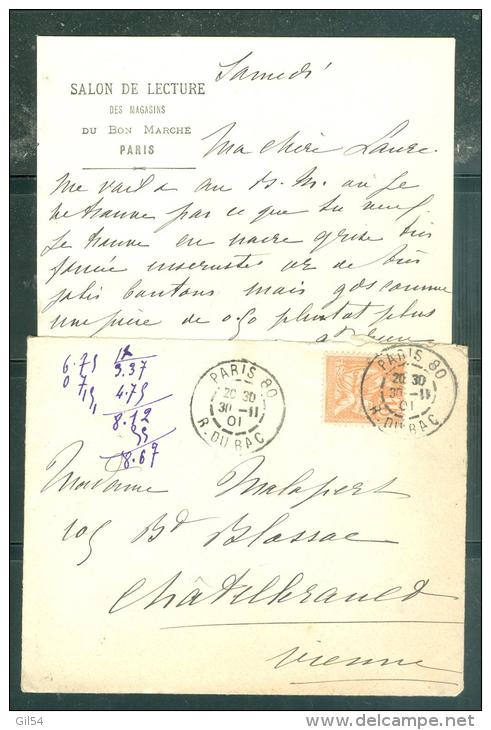 Samedi
SALON DE LECTURE
DES MAGASINS
DU BON MARCHÉ
PARIS
Ma chère Laure.
Me voilà au B. M. où je
ne trouve pas ce que tu veux
Je trouve en nacre grise très
foncée incrustée or de très
jolis boutons mais gros comme
une pièce de 0,50 plutôt plus
6.75
0 7
12
3.37
4.75
8.12
55
8.67
PARIS 80
20 30
30 -11
01
R. DU BAC
PARIS 80
20 30
30 -11
01
R. DU BAC
Madame Malapert
105 Bd Blossac
Châtellerault
Vienne
Gil54
www.delcampe.net